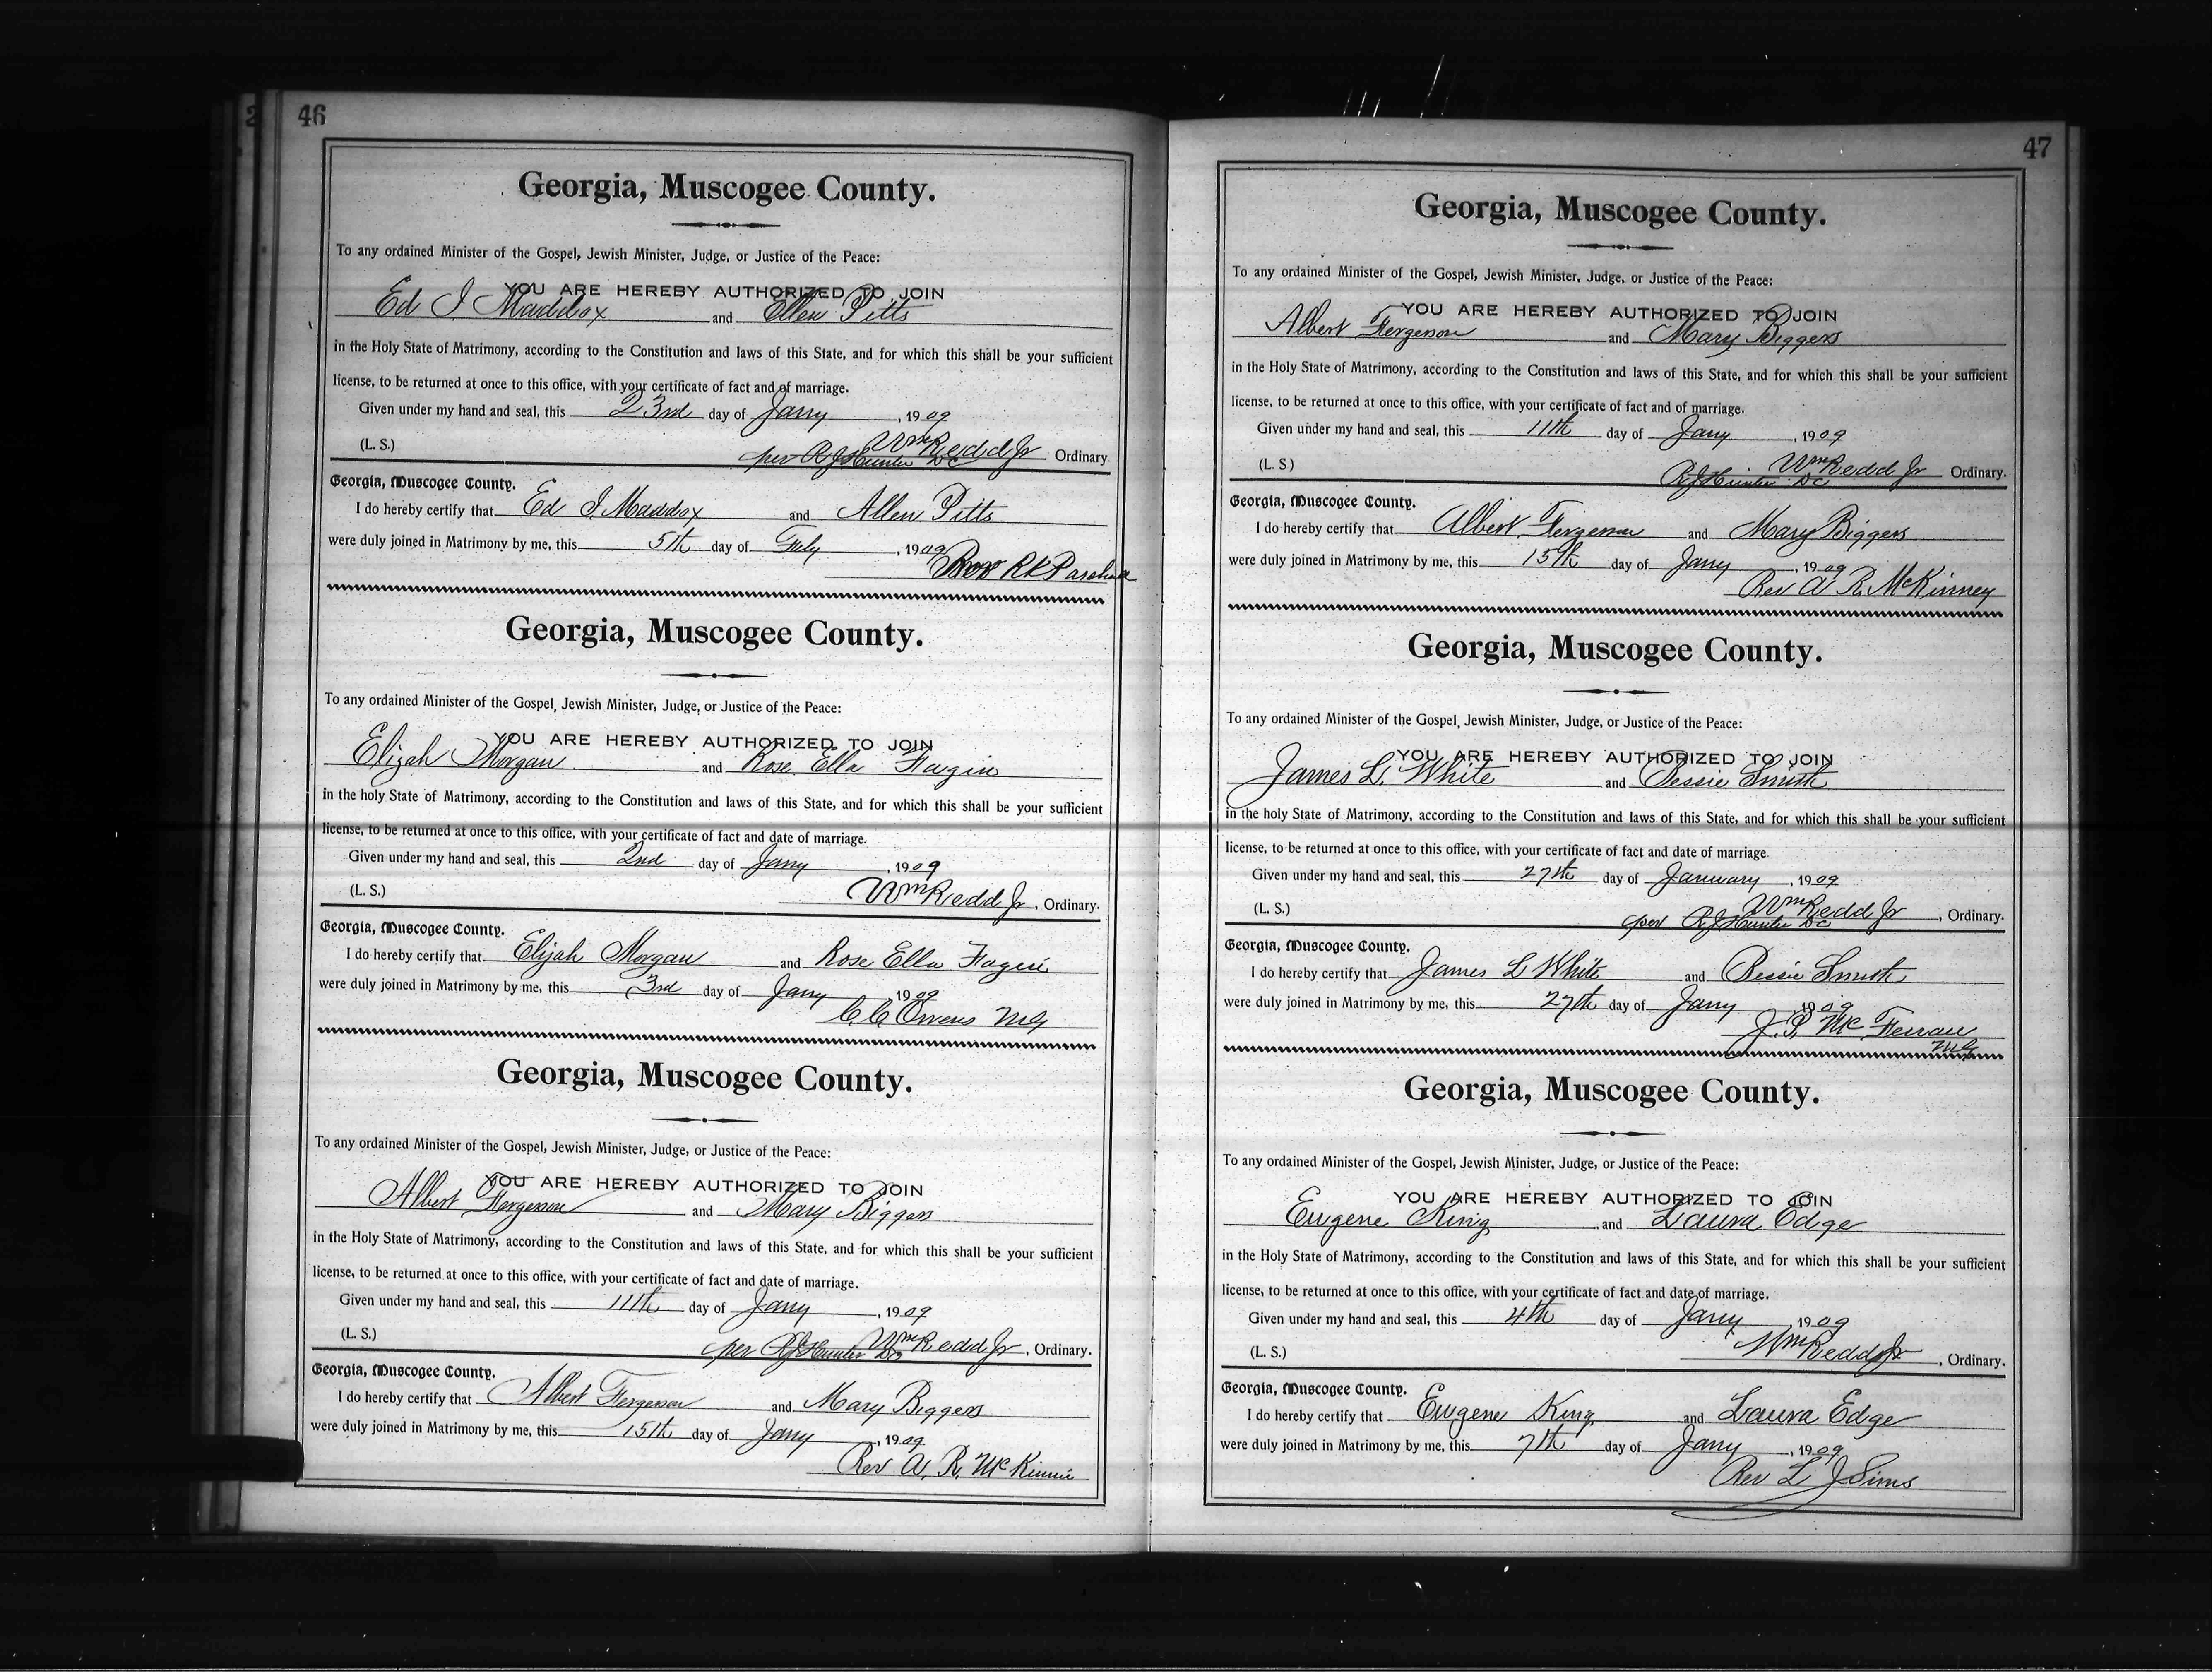 46
Georgia, Muscogee County.
To any ordained Minister of the Gospel, Jewish Minister, Judge, or Justice of the Peace:
YOU ARE HEREBY AUTHORIZED TO JOIN
Ed I Maddox and Ellen Pitts
in the Holy State of Matrimony, according to the Constitution and laws of this State, and for which this shall be your sufficient
license, to be returned at once to this office, with your certificate of fact and of marriage.
Given under my hand and seal, this 23rd day of Jany, 1909
(L. S.) Wm Redd Jr Ordinary
per R J Hunter DC
Georgia, Muscogee County.
I do hereby certify that Ed I. Maddox and Allen Pitts
were duly joined in Matrimony by me, this 5th day of Feby, 1909
R K
Georgia, Muscogee County.
To any ordained Minister of the Gospel, Jewish Minister, Judge, or Justice of the Peace:
YOU ARE HEREBY AUTHORIZED TO JOIN
Elizah Morgan and Rose Ella Fagin
in the holy State of Matrimony, according to the Constitution and laws of this State, and for which this shall be your sufficient
license, to be returned at once to this office, with your certificate of fact and date of marriage.
Given under my hand and seal, this 2nd day of Jany, 1909
(L. S.) Wm Redd Jr, Ordinary.
Georgia, Muscogee County.
I do hereby certify that Elijah Morgan and Rose Ella Fagin
were duly joined in Matrimony by me, this 3rd day of Jany 1909
C. C. Owens MG
Georgia, Muscogee County.
To any ordained Minister of the Gospel, Jewish Minister, Judge, or Justice of the Peace:
YOU ARE HEREBY AUTHORIZED TO JOIN
Albert Fergerson and Mary Biggers
in the Holy State of Matrimony, according to the Constitution and laws of this State, and for which this shall be your sufficient
license, to be returned at once to this office, with your certificate of fact and date of marriage.
Given under my hand and seal, this 11th day of Jany, 1909
(L. S.) Wm Redd Jr, Ordinary.
per R J Hunter DC
Georgia, Muscogee County.
I do hereby certify that Albert Fergerson and Mary Biggers
were duly joined in Matrimony by me, this 15th day of Jany, 1909
Rev A. R. McKinnie
47
Georgia, Muscogee County.
To any ordained Minister of the Gospel, Jewish Minister, Judge, or Justice of the Peace:
YOU ARE HEREBY AUTHORIZED TO JOIN
Albert Fergerson and Mary Biggers
in the Holy State of Matrimony, according to the Constitution and laws of this State, and for which this shall be your sufficient
license, to be returned at once to this office, with your certificate of fact and of marriage.
Given under my hand and seal, this 11th day of Jany, 1909
(L. S) Wm Redd Jr Ordinary.
R J Hunter DC
Georgia, Muscogee County.
I do hereby certify that Albert Fergerson and Mary Biggers
were duly joined in Matrimony by me, this 15th day of Jany, 1909
Rev A R. McKinney
Georgia, Muscogee County.
To any ordained Minister of the Gospel, Jewish Minister, Judge, or Justice of the Peace:
YOU ARE HEREBY AUTHORIZED TO JOIN
James L. White and Bessie Smith
in the holy State of Matrimony, according to the Constitution and laws of this State, and for which this shall be your sufficient
license, to be returned at once to this office, with your certificate of fact and date of marriage.
Given under my hand and seal, this 27th day of January, 1909
(L. S.) Wm Redd Jr, Ordinary.
per R J Hunter DC
Georgia, Muscogee County.
I do hereby certify that James L White and Bessie Smith
were duly joined in Matrimony by me, this 27th day of Jany, 1909
J. P. McFerran
MG
Georgia, Muscogee County.
To any ordained Minister of the Gospel, Jewish Minister, Judge, or Justice of the Peace:
YOU ARE HEREBY AUTHORIZED TO JOIN
Eugene King and Laura Edge
in the Holy State of Matrimony, according to the Constitution and laws of this State, and for which this shall be your sufficient
license, to be returned at once to this office, with your certificate of fact and date of marriage.
Given under my hand and seal, this 4th day of Jany, 1909
(L. S.) Wm Redd Jr, Ordinary.
Georgia, Muscogee County.
I do hereby certify that Eugene King and Laura Edge
were duly joined in Matrimony by me, this 7th day of Jany, 1909
Rev L J Sims